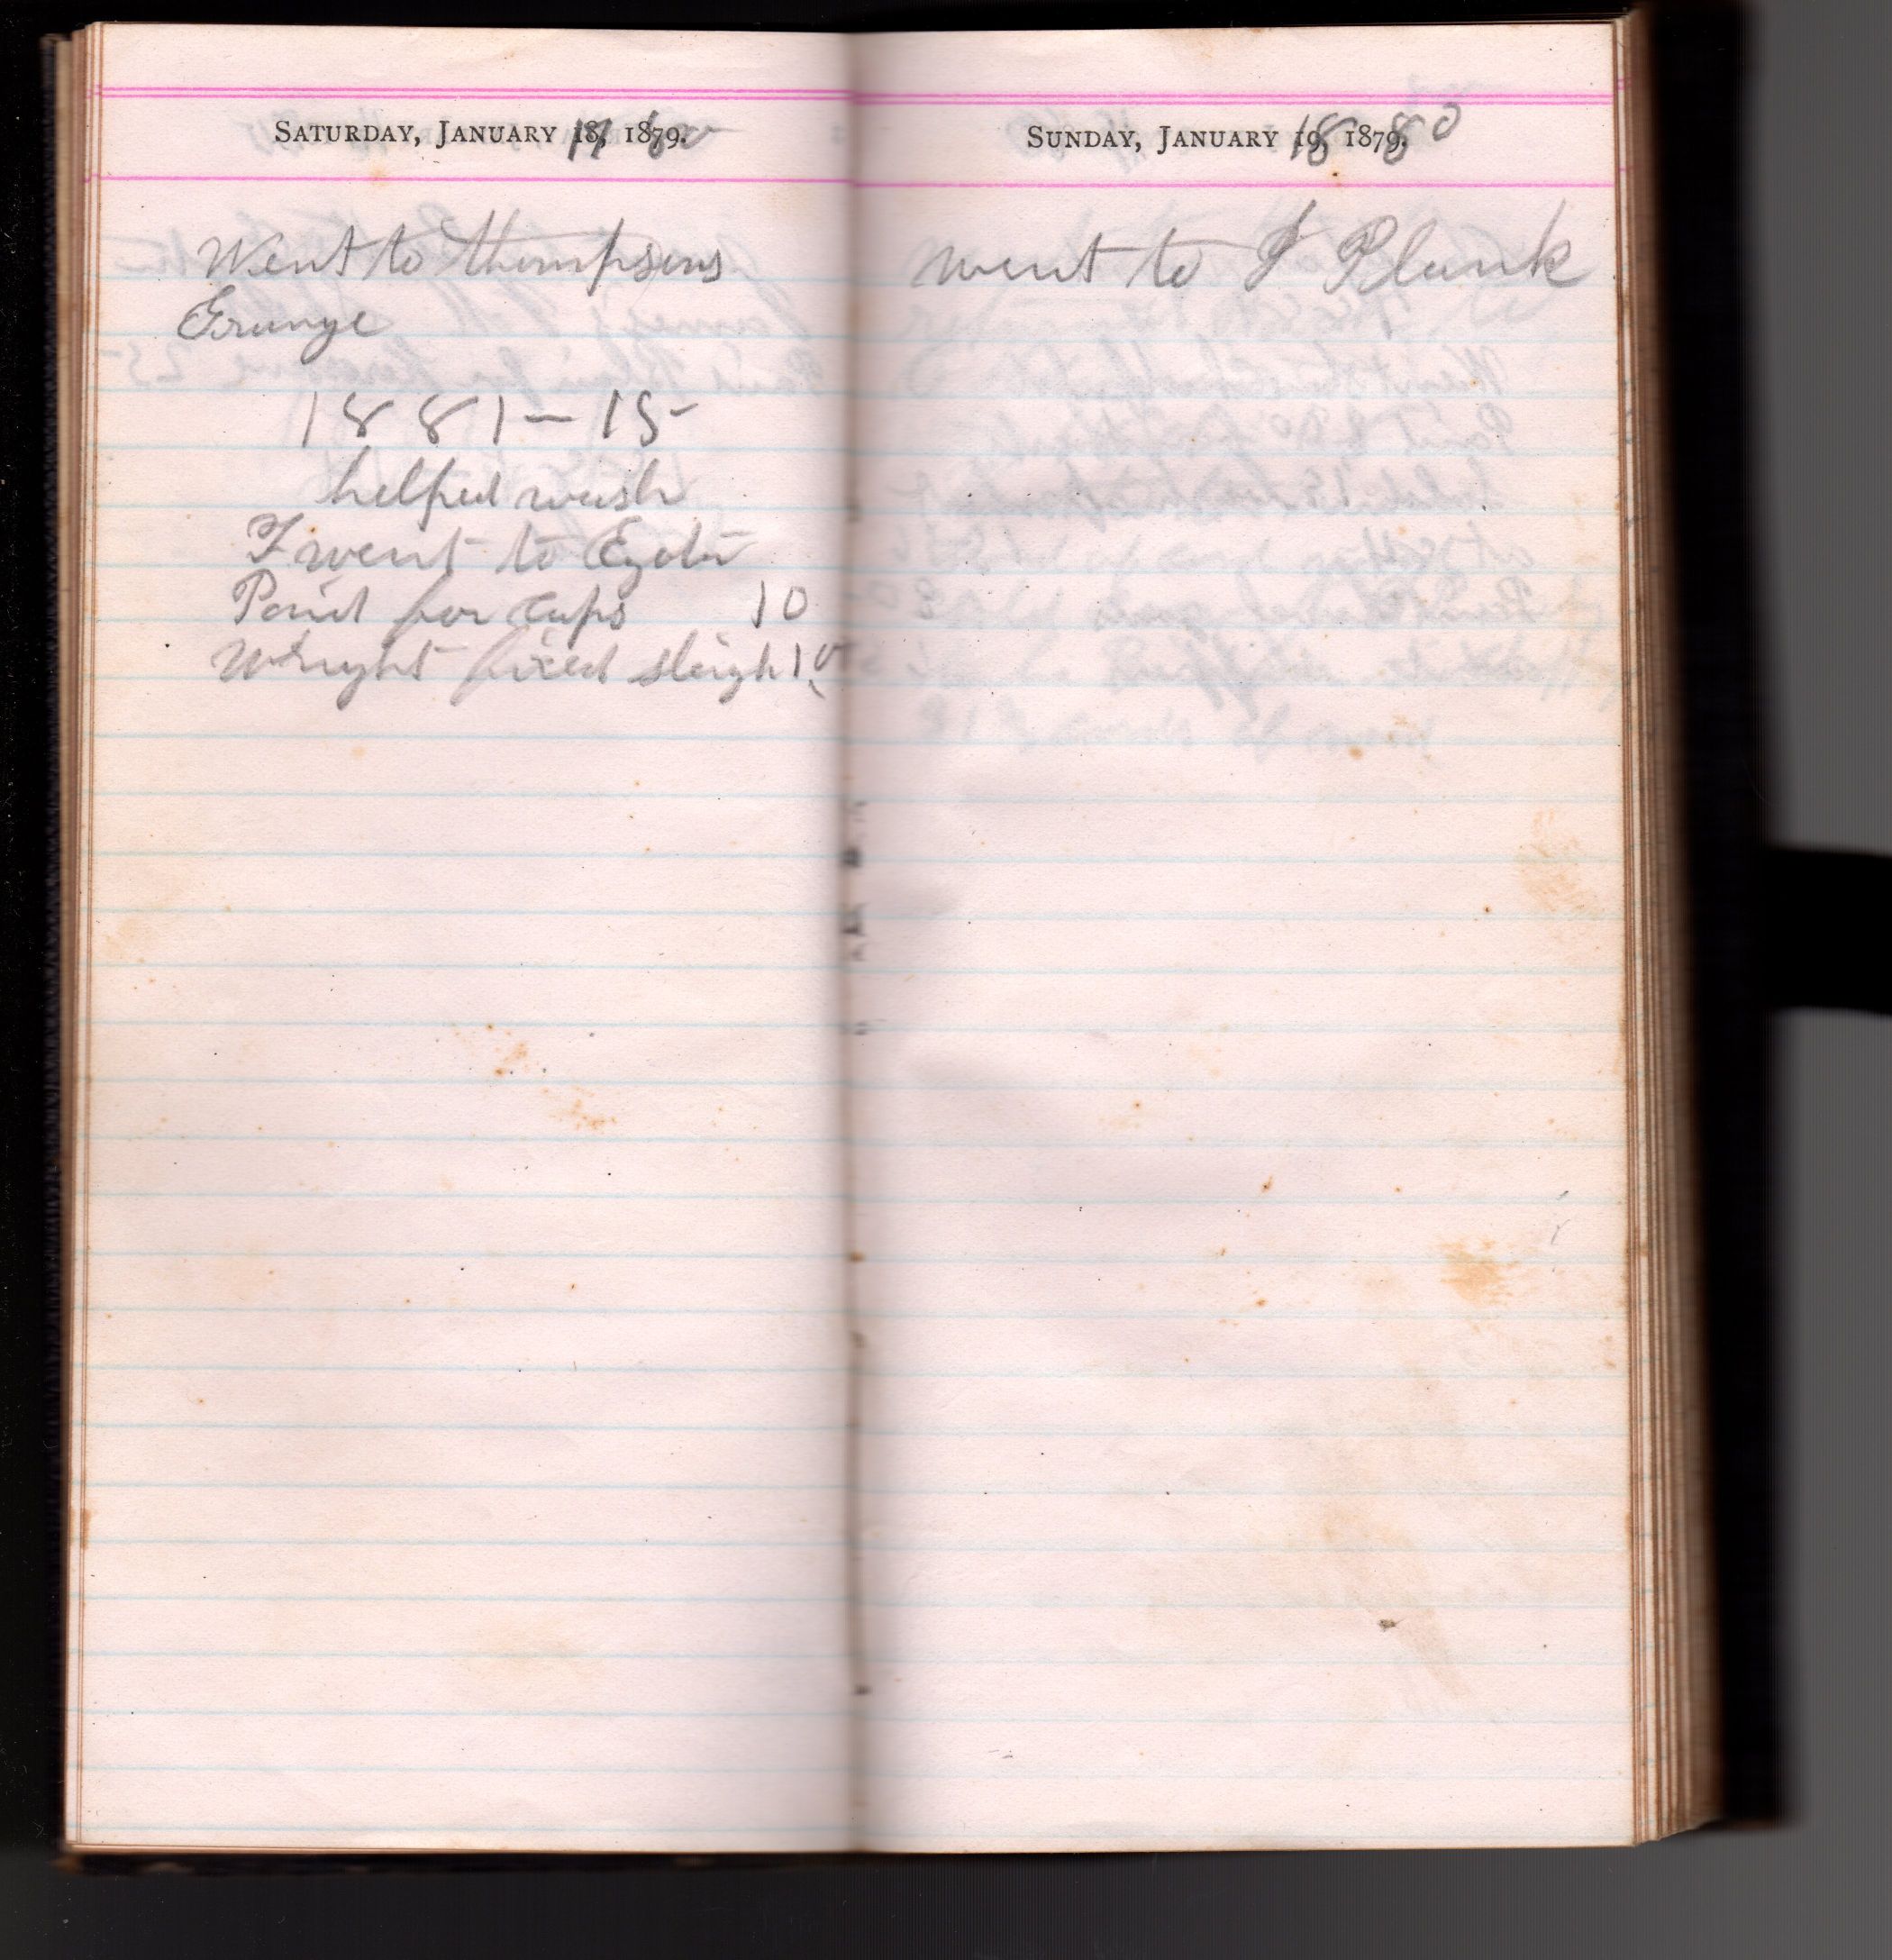 SATURDAY, JANUARY 18, 1879.
17 80
Went to Thompsons
Grange
1881 - 15
helped wash
I went to Eyota
Paid for cups 10
Wright fixed sleigh 10
SUNDAY, JANUARY 19, 1879.
18 80
went to J Plank